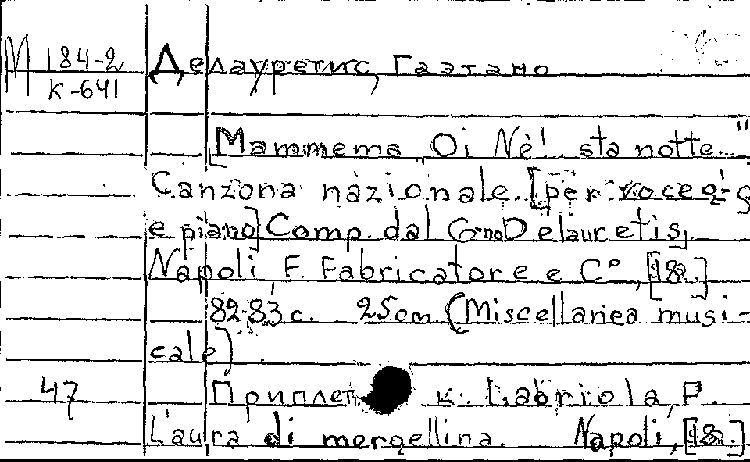 М 184-2 Делауретис, Гаэтано
К-641
[Mammema "Oi Nè! sta notte..."
Canzona nazionale. [per voce
e piano] Comp. dal Gmo Delauretis]
Napoli F. Fabricatore e Cº, [18..]
82-83 c. 25 cm (Miscellanea musi-
cale)
47 Приплет к: Labriola, P.
L'aura di mergellina. Napoli, [18..]